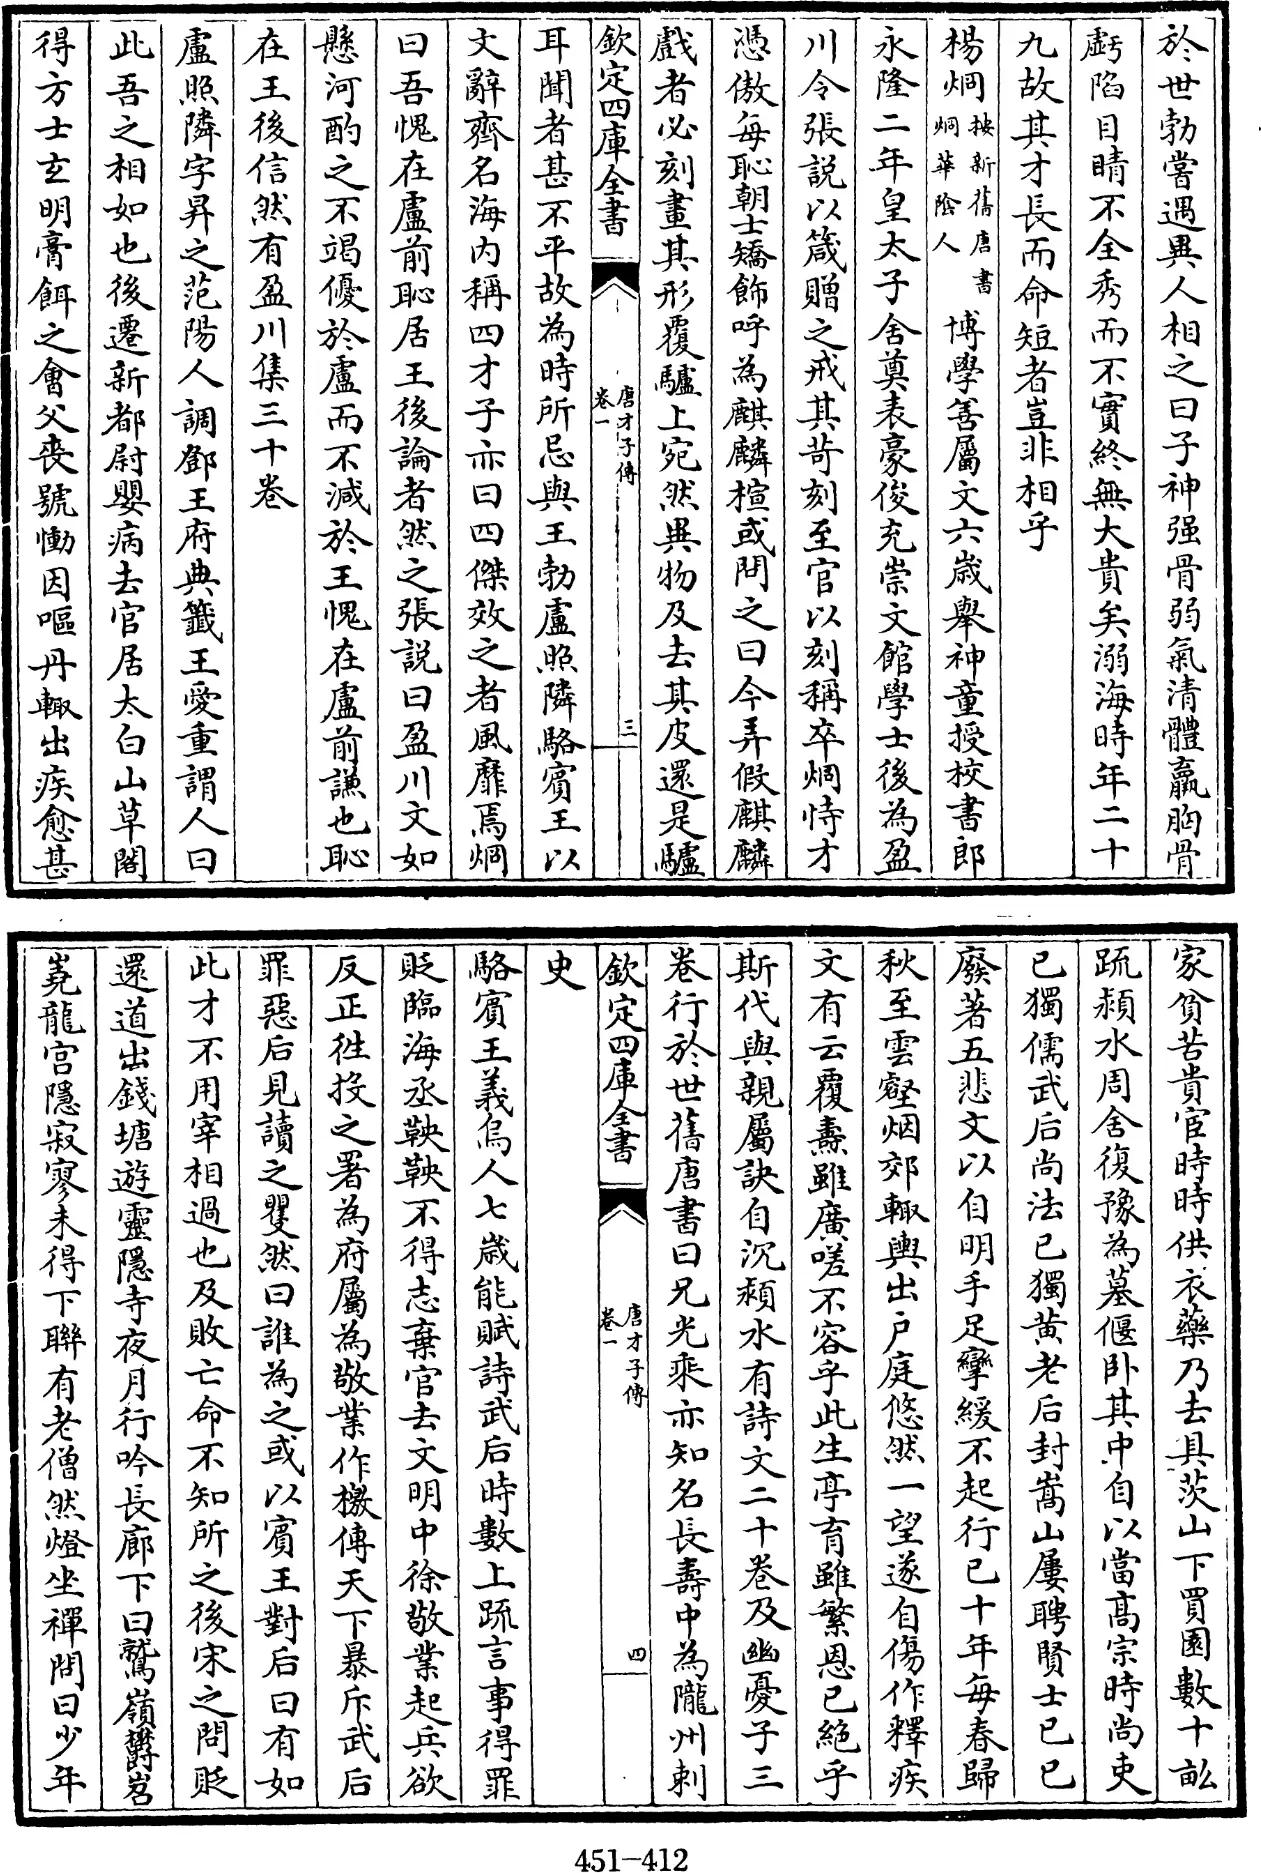 於世勃嘗遇異人相之曰子神强骨弱氣清體羸胸骨
虧陷目睛不全秀而不實終無大貴矣溺海時年二十
九故其才長而命短者豈非相乎
楊烱按新舊唐書烱華陰人博學善屬文六歳舉神童授校書郎
永隆二年皇太子舍奠表豪俊充崇文館學士後為盈
川令張說以箴贈之戒其苛刻至官以刻稱卒烱恃才
憑傲每恥朝士矯飾呼為麒麟楦或問之曰今弄假麒麟
戲者必刻畫其形覆驢上宛然異物及去其皮還是驢
欽定四庫全書 唐才子傳 卷一 三
耳聞者甚不平故為時所忌與王勃盧照隣駱賓王以
文辭齊名海内稱四才子亦曰四傑效之者風靡焉烱
曰吾愧在盧前恥居王後論者然之張說曰盈川文如
懸河酌之不竭優於盧而不減於王愧在盧前謙也恥
在王後信然有盈川集三十卷
盧照隣字昇之范陽人調鄧王府典籖王愛重謂人曰
此吾之相如也後遷新都尉嬰病去官居太白山草閣
得方士玄明膏餌之會父喪號慟因嘔丹輙出疾愈甚
家貧苦貴宦時時供衣藥乃去具茨山下買園數十畝
疏潁水周舍復豫為墓偃卧其中自以當髙宗時尚吏
已獨儒武后尚法已獨黄老后封嵩山屢聘賢士已已
廢著五悲文以自明手足攣緩不起行已十年每春歸
秋至雲壑烟郊輙輿出户庭悠然一望遂自傷作釋疾
文有云覆燾雖廣嗟不容乎此生亭育雖繁恩已絶乎
斯代與親屬訣自沉潁水有詩文二十卷及幽憂子三
卷行於世舊唐書曰兄光乘亦知名長壽中為隴州刺
欽定四庫全書 唐才子傳 卷一 四
史
駱賓王義烏人七歳能賦詩武后時數上疏言事得罪
貶臨海丞鞅鞅不得志棄官去文明中徐敬業起兵欲
反正徃投之署為府屬為敬業作檄傳天下暴斥武后
罪惡后見讀之矍然曰誰為之或以賓王對后曰有如
此才不用宰相過也及敗亡命不知所之後宋之問貶
還道出錢塘遊靈隠寺夜月行吟長廊下曰鷲嶺欝岧
嶤龍宫隠寂寥未得下聯有老僧然燈坐禪問曰少年
451-412